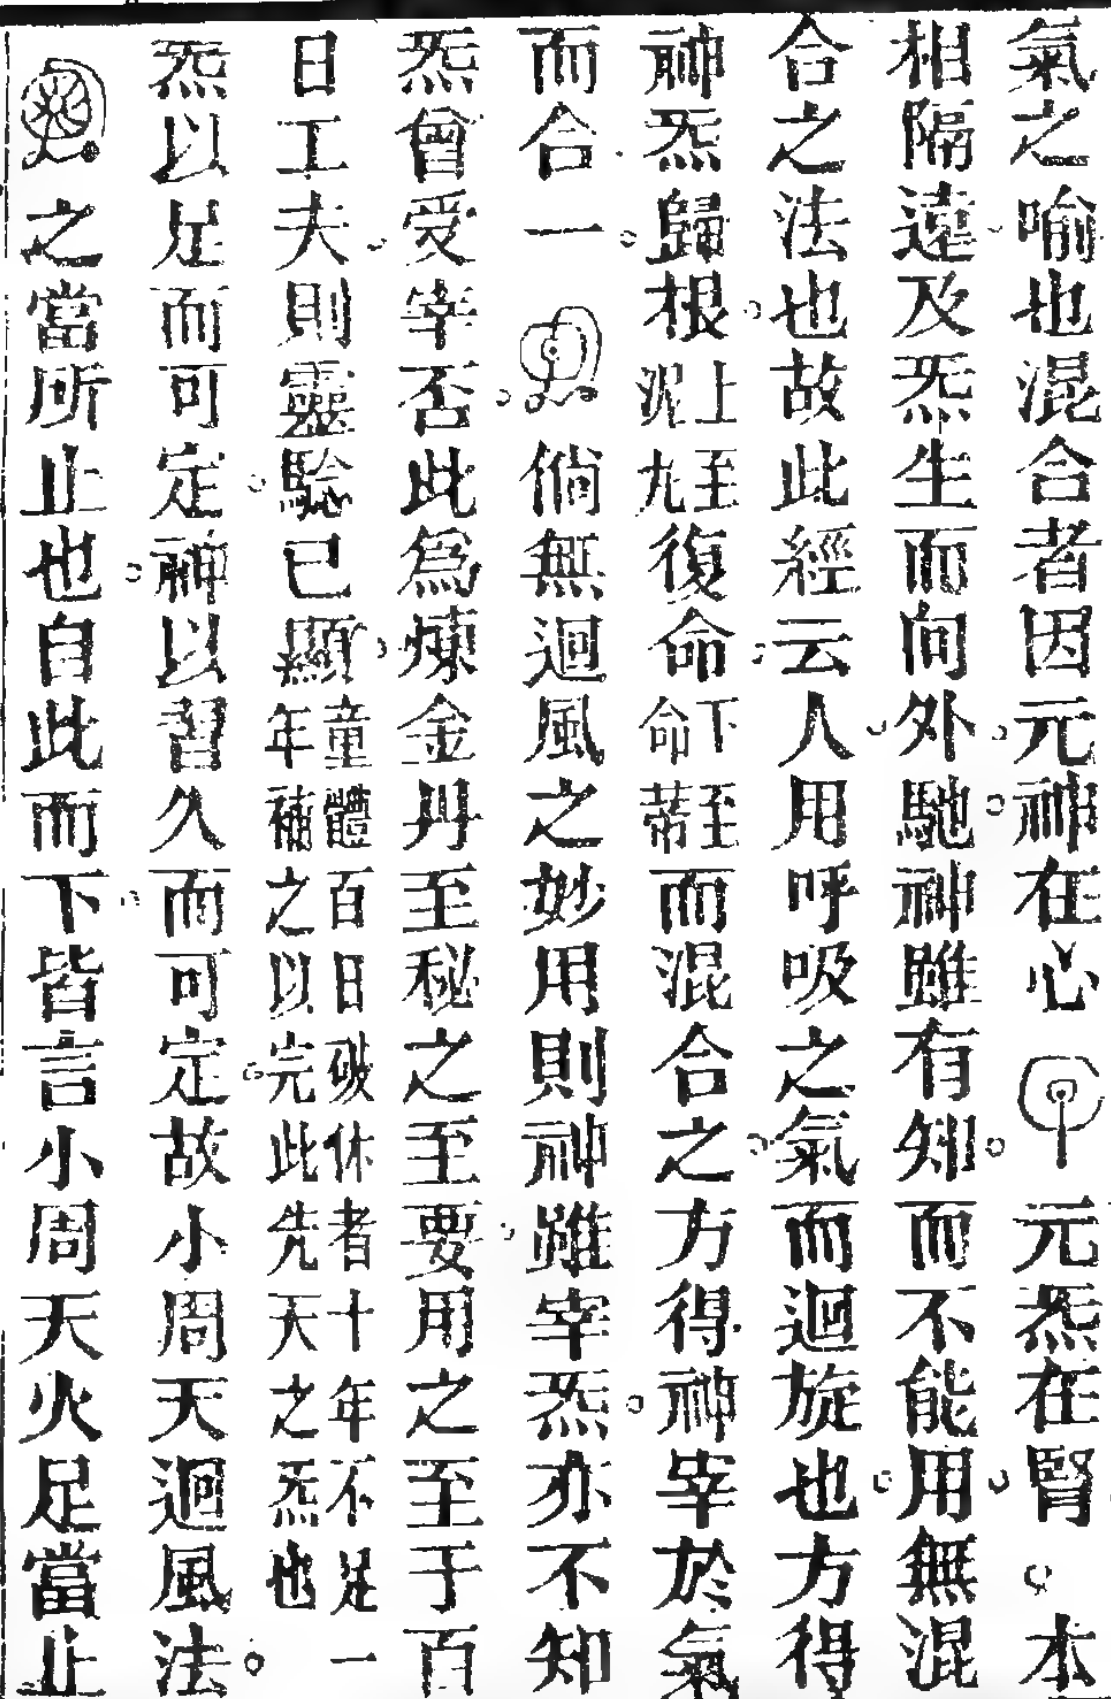 氣之喻也混合者因元神在心元炁在腎本
相隔遠及炁生而向外馳神雖有知而不能用無混
合之法也故此經云人用呼吸之氣而迴旋也方得
神炁歸根上至泥九復命下至命蒂而混合之方得神宰於氣
而合一倘無迴風之妙用則神雖宰炁亦不知
炁曾受宰否此為煉金丹至秘之至要用之至于百
日工夫則靈驗已顯童體百日破休者十年不足一年補之以完此先天之炁也
炁以足而可定神以習久而可定故小周天迴風法
之當所止也自此而下皆言小周天火足當止